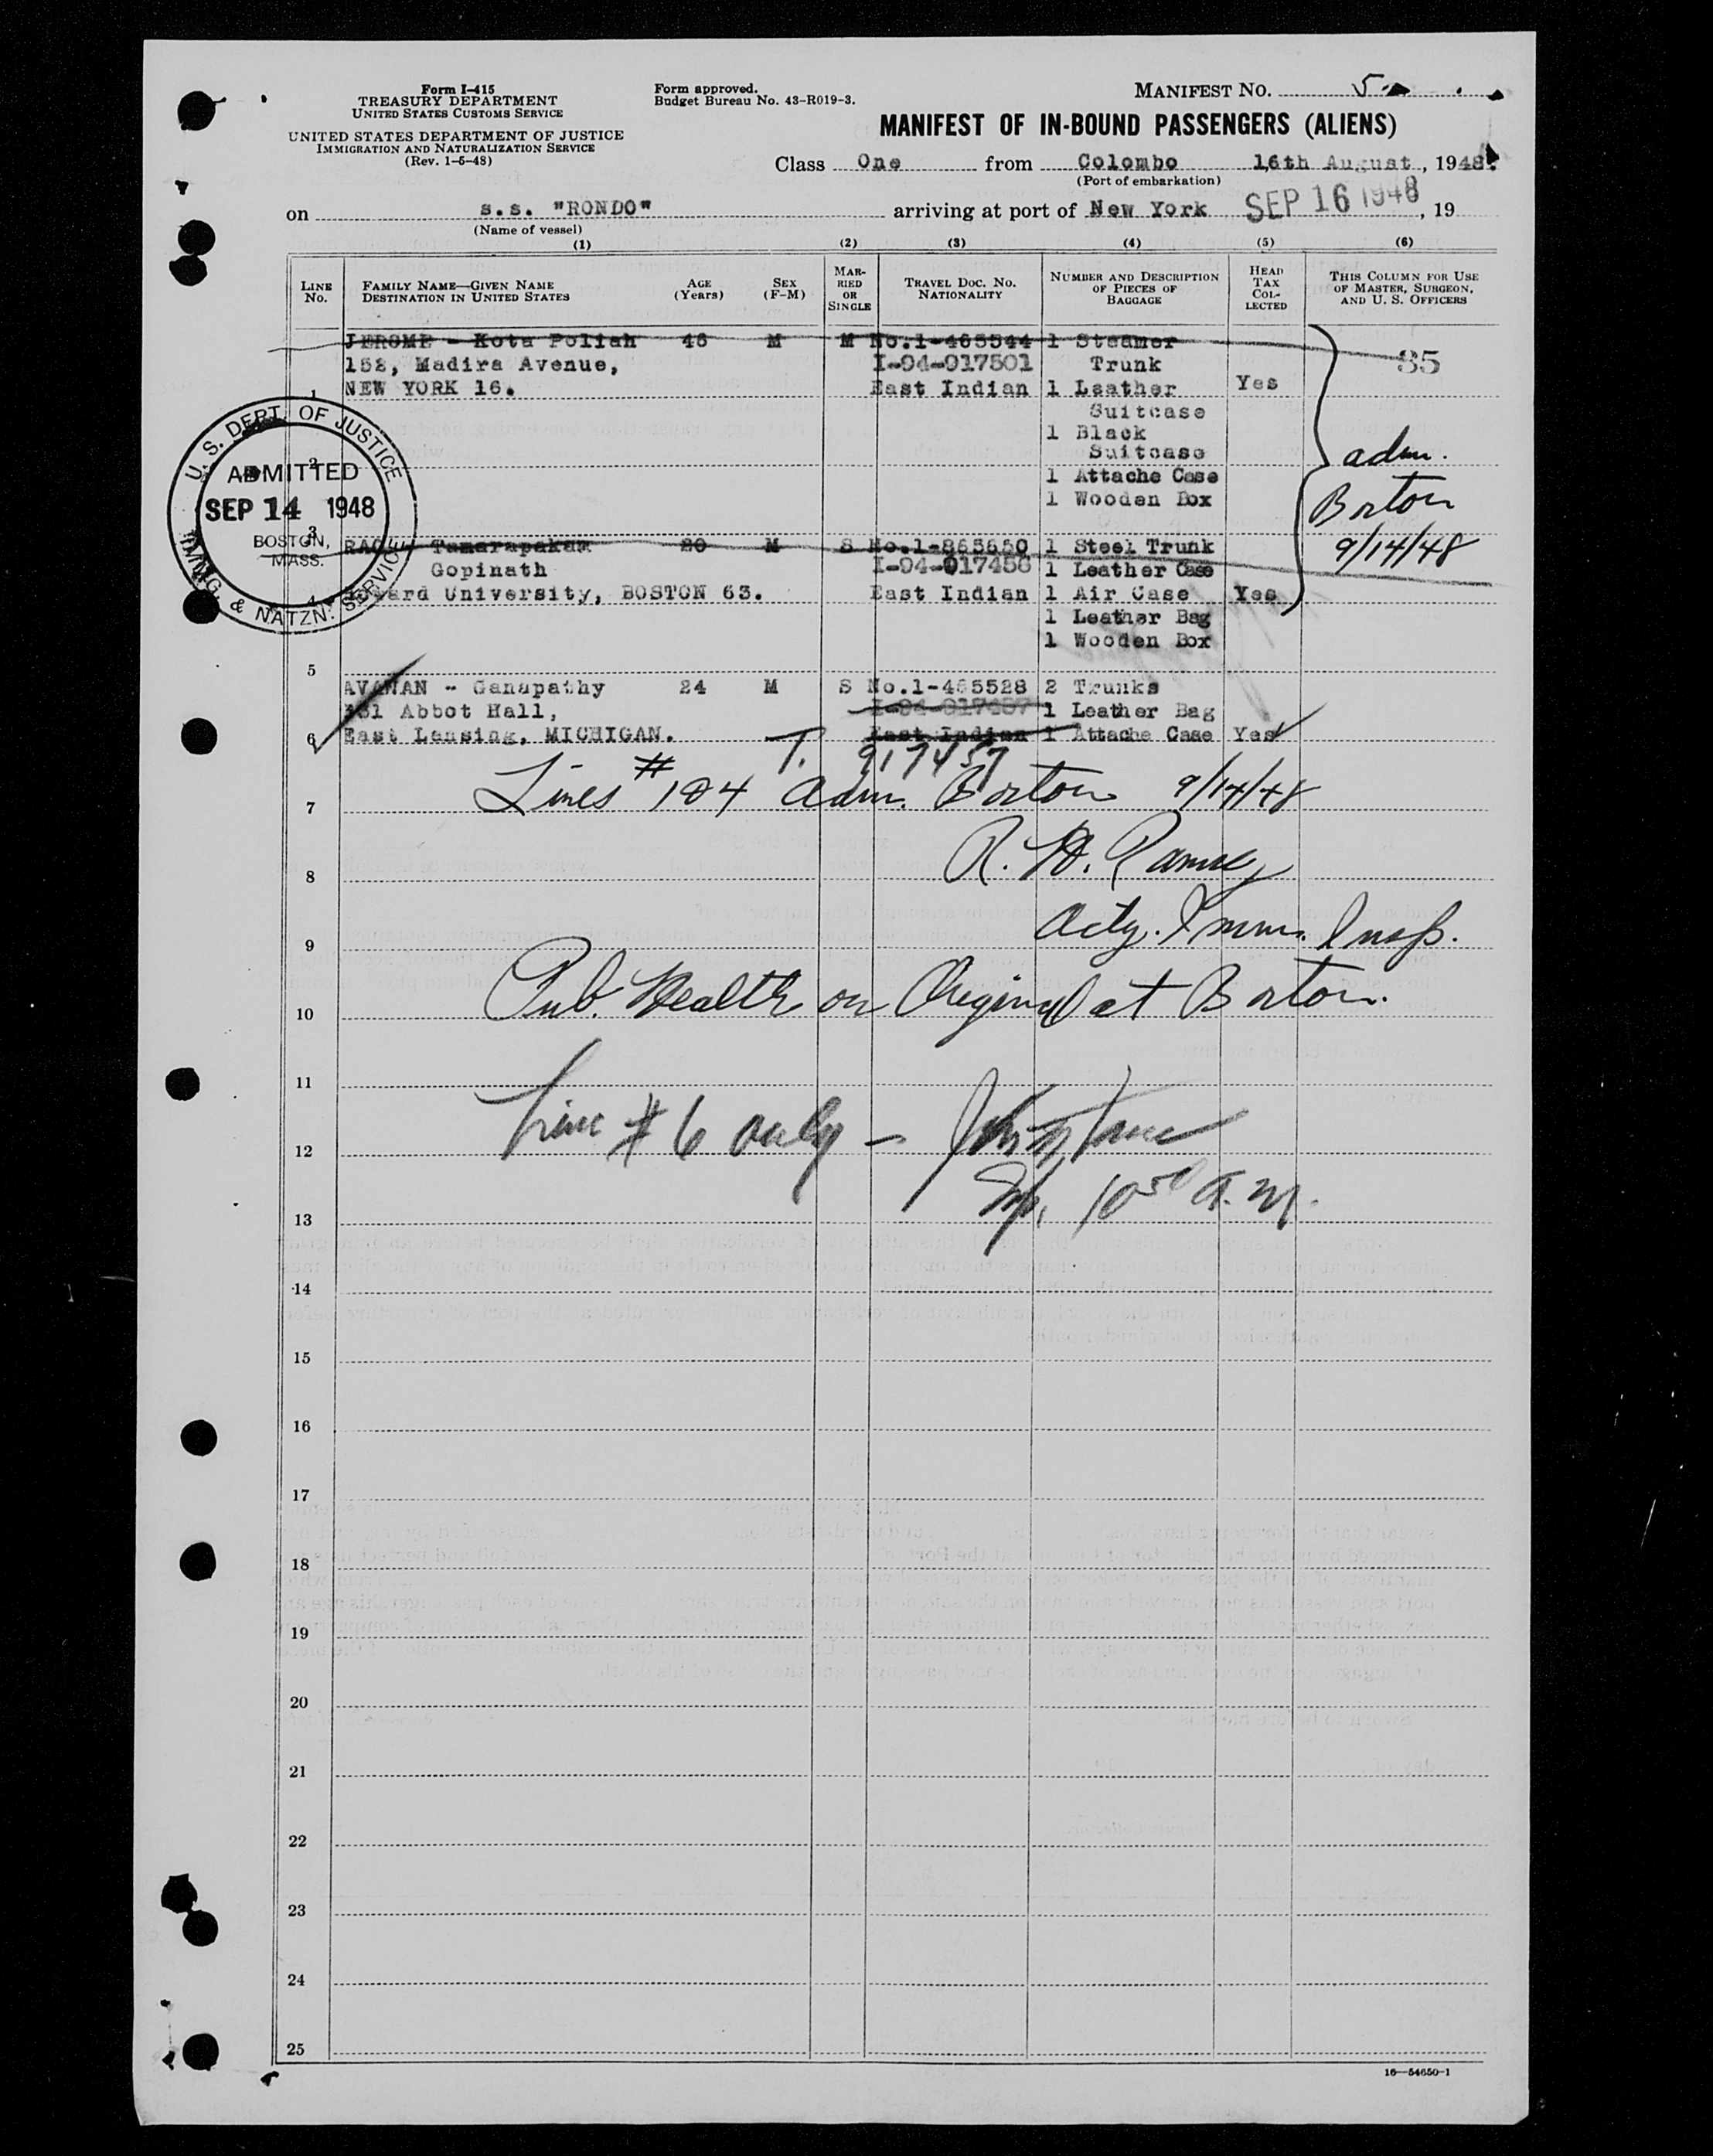 Form I-415
TREASURY DEPARTMENT
UNITED STATES CUSTOMS SERVICE
UNITED STATES DEPARTMENT OF JUSTICE
IMMIGRATION AND NATURALIZATION SERVICE
(Rev. 1-6-48)
Form approved.
Budget Bureau No. 43-R019-3.
MANIFEST NO. 5
MANIFEST OF IN-BOUND PASSENGERS (ALIENS)
Class One from Colombo 16th August, 1948.
(Port of embarkation)
on s.s. "RONDO" arriving at port of New York SEP 16 1948, 19
(Name of vessel)
(1) (2) (3) (4) (5) (6)
LINE No. FAMILY NAME—GIVEN NAME DESTINATION IN UNITED STATES AGE (Years) SEX (F-M) MARRIED OR SINGLE TRAVEL DOC. NO. NATIONALITY NUMBER AND DESCRIPTION OF PIECES OF BAGGAGE HEAD TAX COLLECTED THIS COLUMN FOR USE OF MASTER, SURGEON, AND U. S. OFFICERS
JEROME - Kota Poliah 46 M M No.1-465544 1 Steamer
152, Madira Avenue, I-94-917501 Trunk 35
1 NEW YORK 16. East Indian 1 Leather Yes
Suitcase
1 Black
Suitcase adm.
2
1 Attache Case
1 Wooden Box Boston
3
RAO Tamarapakam 20 M S No.1-865650 1 Steel Trunk 9/14/48
Gopinath I-94-917456 1 Leather Case
4 University, BOSTON 63. East Indian 1 Air Case Yes
1 Leather Bag
1 Wooden Box
U. S. DEPT. OF JUSTICE
ADMITTED
SEP 14 1948
BOSTON,
MASS.
IMMIG. & NATZN. SERVICE
5
AVANAN - Ganapathy 24 M S No.1-465528 2 Trunks
Abbot Hall, I-94-917457 1 Leather Bag
6 East Lansing, MICHIGAN. East Indian 1 Attache Case Yes
T. 917457
7 Lines # 1&4 adm. Boston 9/14/48
8 R. H.
9 Actg. Imm. Insp.
10 Pub. Health on Original at Boston.
11
12 Line # 6 only -
13 10 50 A.M.
14
15
16
17
18
19
20
21
22
23
24
25
16—54650-1